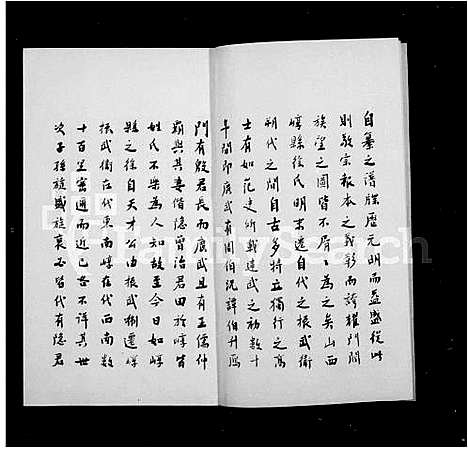 自纂之譜牒歷元明而益盛從此
則敦宗報本之義彰而誇耀門閥
族望之圖皆不屑為之矣山西
崞縣徐氏明末遷自代之振武衛
朔代之間自古多特立獨行之高
士有如范史所載建武之初數十
年間即廣武有周伯況譚伯升雁
門有殷君長而廣武且有王儒仲
霸與其妻偕隱曾治君田於崞皆
姓氏不樂為人知故至今日如崞
縣之徐自天才公由振武衛遷崞
振武衛在代東南崞在代西南數
十百里密邇而近已各不詳其世
次子孫旋盛旋衰必皆代有隱君
FamilySearch